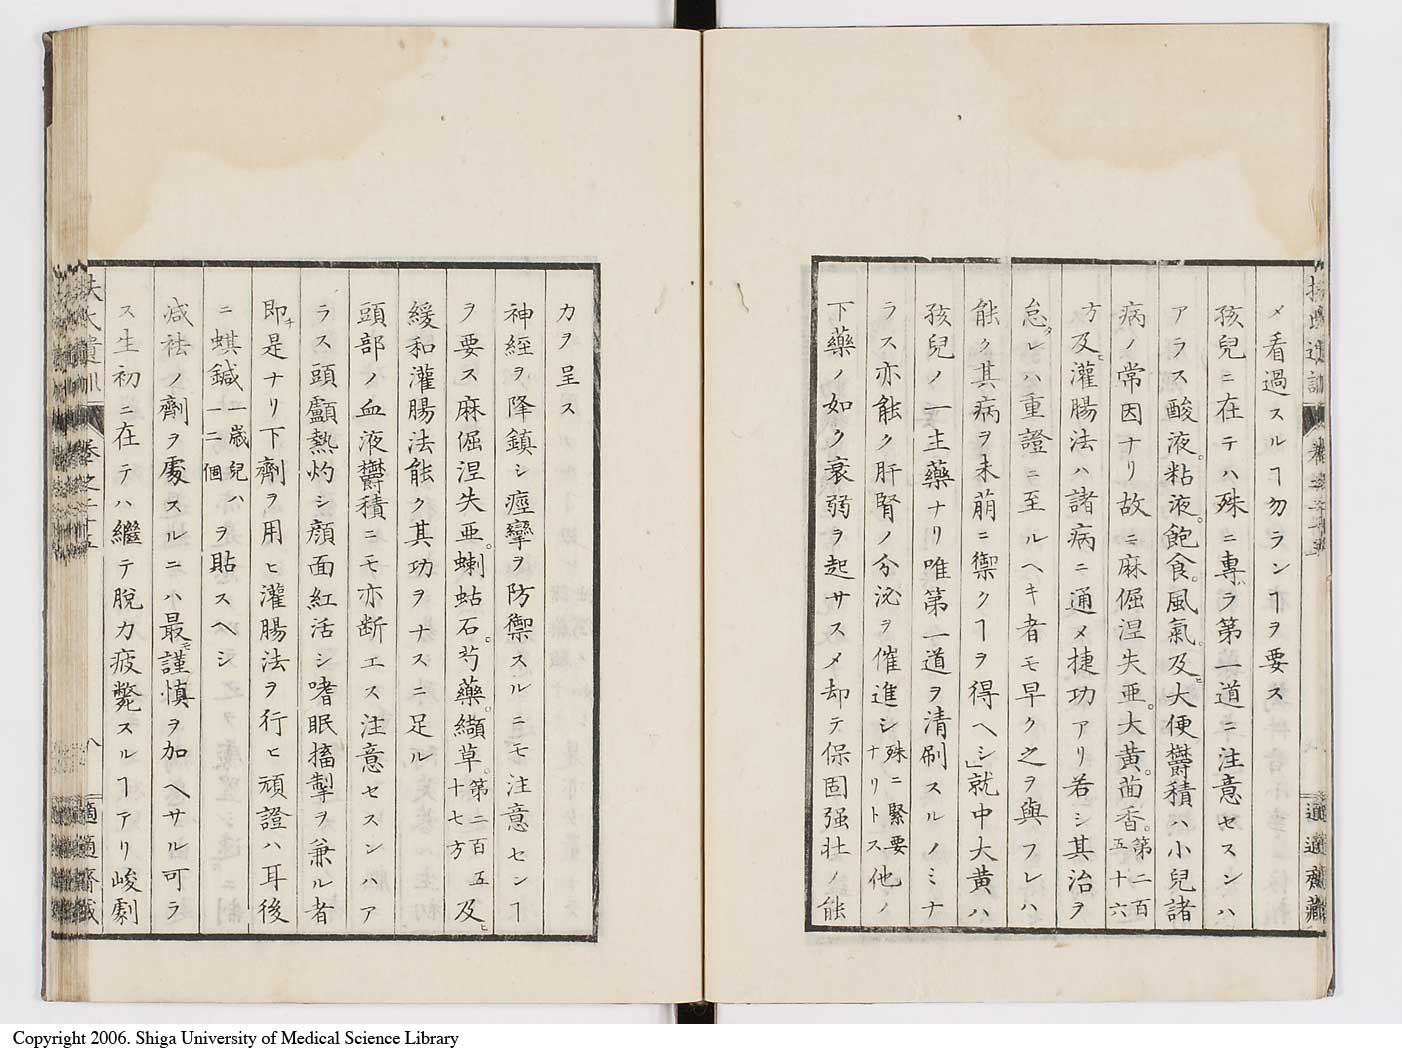 メ看過スルヿ勿ランヿヲ要ス
孩兒ニ在テハ殊ニ專ラ第一道ニ注意セスンハ
アラス酸液。粘液。飽食。風氣。及ヒ大便欝積ハ小兒諸
病ノ常因ナリ故ニ麻倔涅失亜。大黄。茴香。第二百五十六
方及ヒ灌腸法ハ諸病ニ通メ捷功アリ若シ其治ヲ
怠タレハ重證ニ至ルヘキ者モ早ク之ヲ與フレハ
能ク其病ヲ未萠ニ禦クヿヲ得ヘシ」就中大黄ハ
孩兒ノ一主藥ナリ唯第一道ヲ清刷スルノミナ
ラス亦能ク肝腎ノ分泌ヲ催進シ殊ニ緊要ナリトス他ノ
下藥ノ如ク衰弱ヲ起サスメ却テ保固强壮ノ能
力ヲ呈ス
神經ヲ降鎮シ痙攣ヲ防禦スルニモ注意センヿ
ヲ要ス麻倔涅失亜。蝲蛄石。芍藥。纈草。第二百五十七方及ヒ
緩和灌腸法能ク其功ヲナスニ足ル
頭部ノ血液欝積ニモ亦断エス注意セスンハア
ラス頭顱熱灼シ顔面紅活シ嗜眠搐掣ヲ兼ル者
即チ是ナリ下劑ヲ用ヒ灌腸法ヲ行ヒ頑證ハ耳後
ニ蜞鍼一歳兒ハ一二個ヲ貼スヘシ
減祛ノ劑ヲ處スルニハ最モ謹慎ヲ加ヘサル可ラ
ス生初ニ在テハ繼テ脱力疲斃スルヿアリ峻劇
扶氏遺訓
卷之二十五
八
適適齋藏